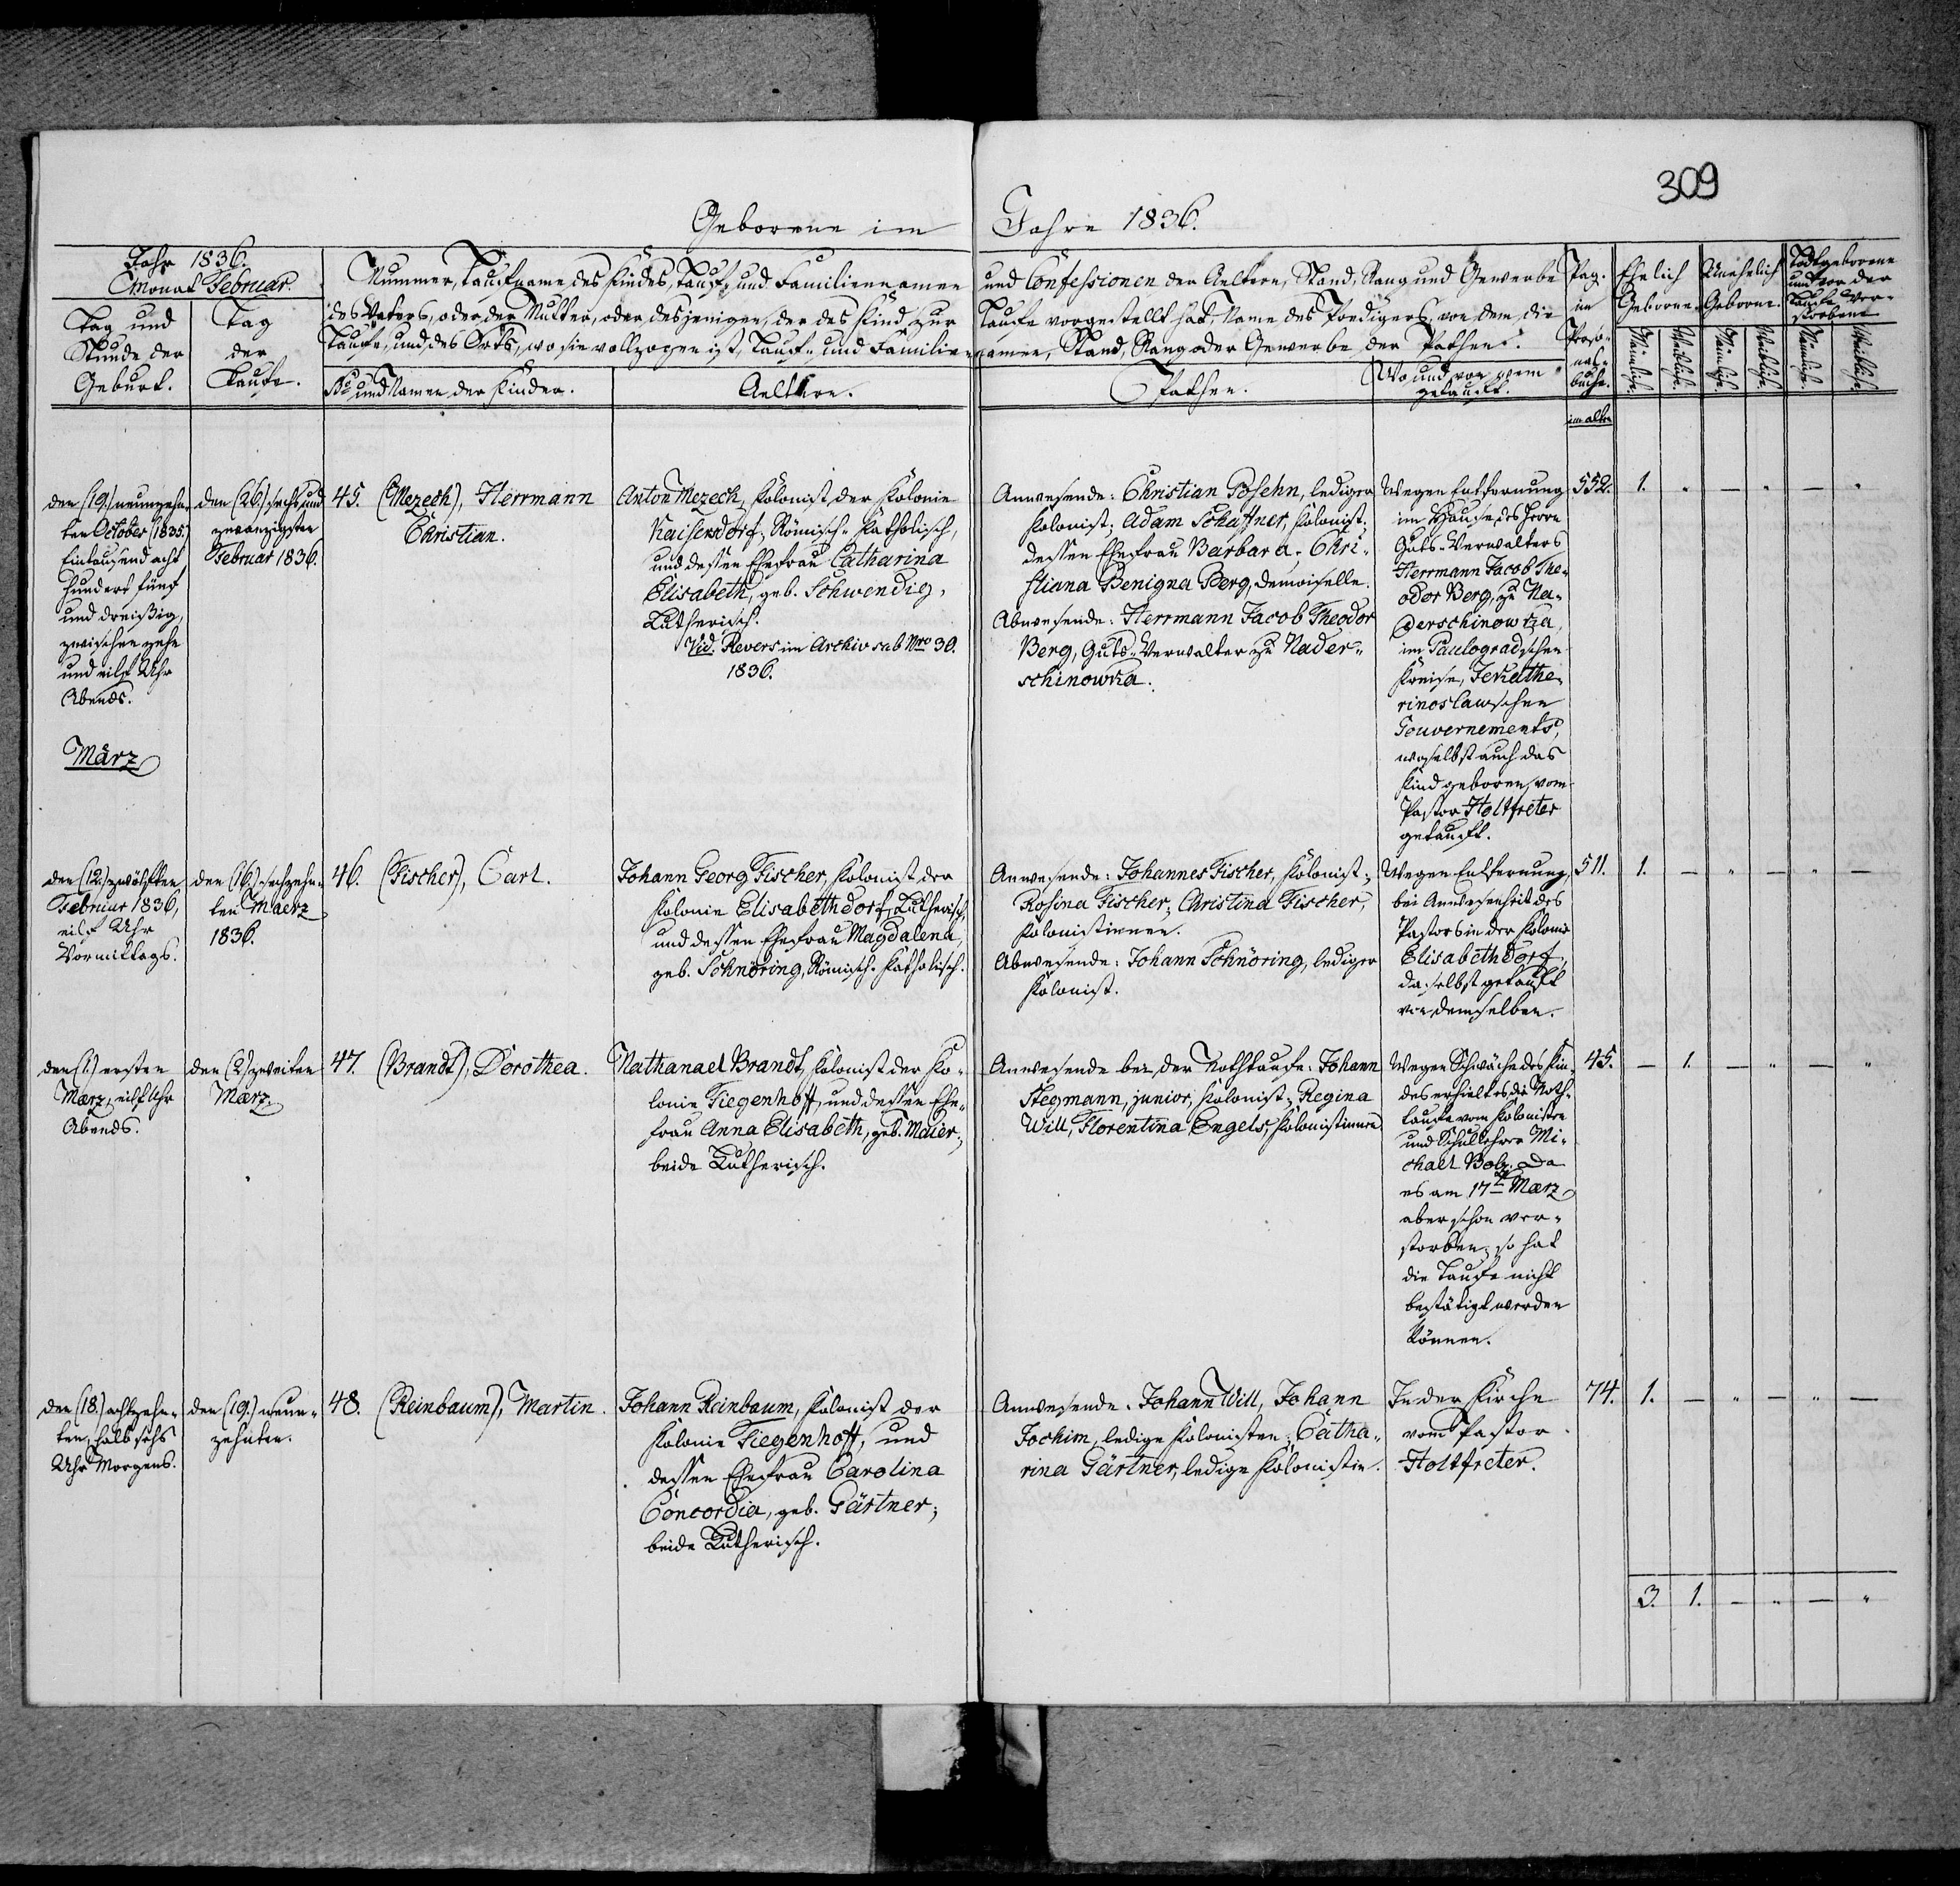 309
Geborene im Jahre 1836.
Jahr 1836.
Monat Februar.
Tag und
Stunde der
Geburt.
Tag
der
Taufe.
Nummer, Taufname des Kindes, Tauf- und Familiennamen
des Vaters, oder der Mutter, oder desjenigen, der des Kind zur
Taufe, und des Orts, wo sie vollzogen ist, Tauf- und Familien-
No und Namen der Kinder.
Aeltern.
und Confessionen der Aeltern, Stand, Rang und Gewerbe
Taufe vorgestellt hat, Name des Predigers, von dem die
namen, Stand, Rang oder Gewerbe der Pathen.
Pathen.
Wo und von wem
getauft.
Pag.
im
Perso-
nal-
buche.
im alten
Ehelich
Geborene.
Unehelich
Geborene.
Todtgeborene
und vor der
Taufe Ver-
storbene
Männlich.
Weiblich.
Männlich.
Weiblich.
Männlich.
Weiblich.
den (19.) neunzehn-
ten October (1835.)
Eintausend acht
hundert fünf
und dreißig,
zwischen zehn
und eilf Uhr
Abends.
den (26.) sechs und
zwanzigsten
Februar 1836.
45. (Mezech), Herrmann
Christian.
Anton Mezech, Kolonist der Kolonie
Kaisersdorf, Römisch-Katholisch,
und dessen Ehefrau Catharina
Elisabeth, geb. Schwendig,
Lutherisch.
Vid. Revers im Archiv sub Nro 30.
1836.
Anwesende: Christian Bosehn, lediger
Kolonist; Adam Schaffner, Kolonist,
dessen Ehefrau Barbara. Chri-
stiana Benigna Berg, Demoiselle.
Abwesende: Herrmann Jacob Theodor
Berg, Guts-Verwalter zu Nader-
schinowka.
Wegen Entfernung
im Hause des Herrn
Guts-Verwalters
Herrmann Jacob The-
odor Berg, zu Na-
derschinowka,
im Paulogradschen
Kreise, Jekathe-
rinoslawschen
Gouvernements,
woselbst auch das
Kind geboren, vom
Pastor Holtfreter
getauft.
552. 1. " — " — "
März
den (12.) zwölften
Februar 1836,
eilf Uhr
Vormittags.
den (16.) sechzehn-
ten Maerz
1836.
46. (Fischer), Carl.
Johann Georg Fischer, Kolonist der
Kolonie Elisabethdorf, Lutherisch,
und dessen Ehefrau Magdalena,
geb. Schnöring, Römisch-Katholisch.
Anwesende: Johannes Fischer, Kolonist;
Rosina Fischer; Christina Fischer,
Kolonistinnen.
Abwesende: Johann Schnöring, lediger
Kolonist.
Wegen Entfernung,
bei Anwesenheit des
Pastors in der Kolonie
Elisabethdorf,
daselbst getauft
von demselben.
511. 1. — " — " —
den (1.) ersten
März, eilf Uhr
Abends.
den (2.) zweiten
März
47. (Brandt), Dorothea.
Nathanael Brandt, Kolonist der Ko-
lonie Tiegenhoff, und dessen Ehe-
frau Anna Elisabeth, geb. Maier;
beide Lutherisch.
Anwesende bei der Nothtaufe: Johann
Stegmann, junior, Kolonist; Regina
Will, Florentina Engels, Kolonistinnen
Wegen Schwäche des Kin-
des erhielt es die Noth-
taufe vom Kolonisten
und Schullehrer Mi-
chael Bolz. Da
es am 17ten Maerz
aber schon ver-
storben, so hat
die Taufe nicht
bestätigt werden
können.
45. — 1. — " — "
den (18.) achtzehn-
ten, halb sechs
Uhr Morgens.
den (19.) neun-
zehnten.
48. (Reinbaum), Martin.
Johann Reinbaum, Kolonist der
Kolonie Tiegenhoff, und
dessen Ehefrau Carolina
Concordia, geb. Gärtner;
beide Lutherisch.
Anwesende: Johann Will, Johann
Jochim, ledige Kolonisten; Catha-
rina Gärtner, ledige Kolonistin.
In der Kirche
vom Pastor
Holtfreter.
74. 1. — " — " —
3. 1. — " — "